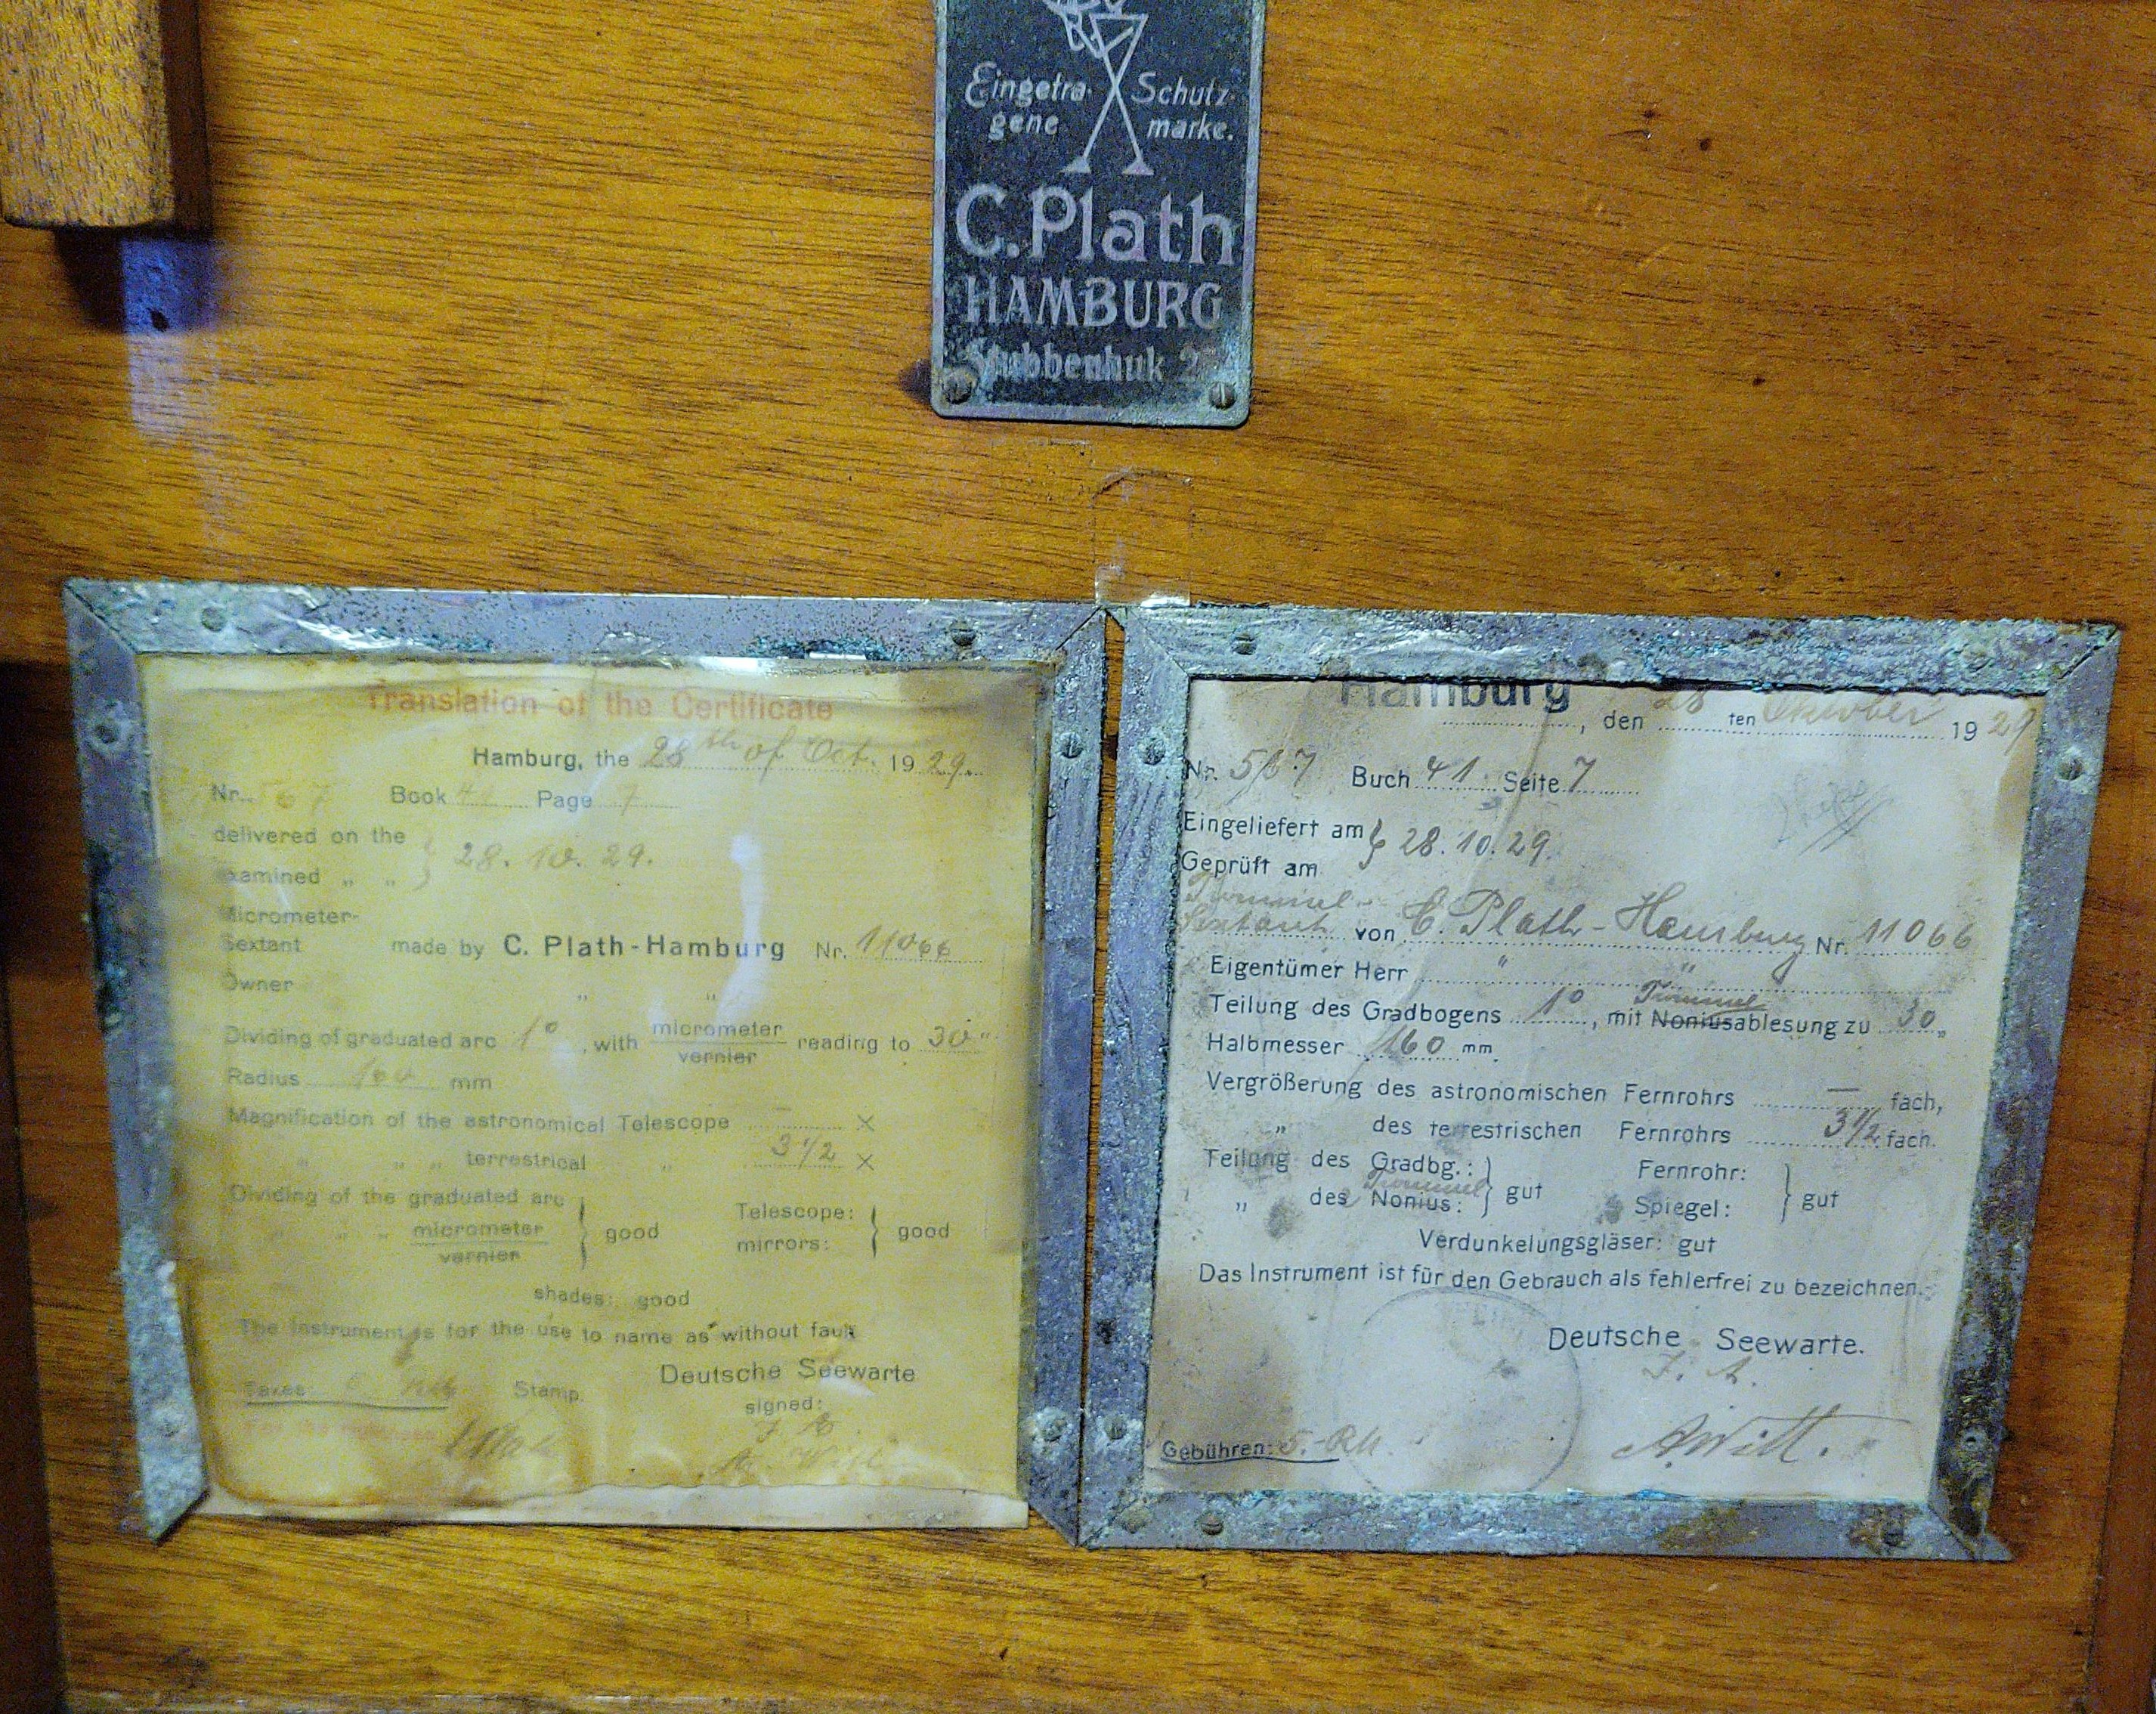 Eingetra- Schutz-
gene marke.
C. Plath
HAMBURG
Stubbenhuk 25
Translation of the Certificate
Hamburg, the 28th of Oct. 1929.
Nr. 567 Book 41 Page 7
delivered on the
examined " " } 28. 10. 29.
Micrometer-
Sextant made by C. Plath-Hamburg Nr. 11066
Owner " "
Dividing of graduated arc 1° , with micrometer reading to 30"
vernier
Radius 160 mm
Magnification of the astronomical Telescope — X
" " " terrestrical " 3 1/2 X
Dividing of the graduated arc Telescope:
" " " micrometer } good mirrors: } good
vernier
shades: good
The Instrument is for the use to name as without fault
Deutsche Seewarte
Taxes: Stamp.
signed:
Hamburg, den 28 ten Oktober 1929
Nr. 567 Buch 41 Seite 7
Eingeliefert am
Geprüft am } 28.10.29.
Trommel-
Sextant von C. Plath-Hamburg Nr. 11066
Eigentümer Herr " "
Trommel
Teilung des Gradbogens 1°, mit Noniusablesung zu 30"
Halbmesser 160 mm.
Vergrößerung des astronomischen Fernrohrs — fach,
" des terrestrischen Fernrohrs 3 1/2 fach.
Teilung des Gradbg.: Fernrohr:
Trommel
" des Nonius: } gut Spiegel: } gut
Verdunkelungsgläser: gut
Das Instrument ist für den Gebrauch als fehlerfrei zu bezeichnen.
Deutsche Seewarte.
I. A.
A. Witt.
Gebühren: 5.- RM.